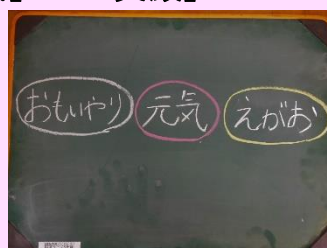 おもいやり 元気 えがお